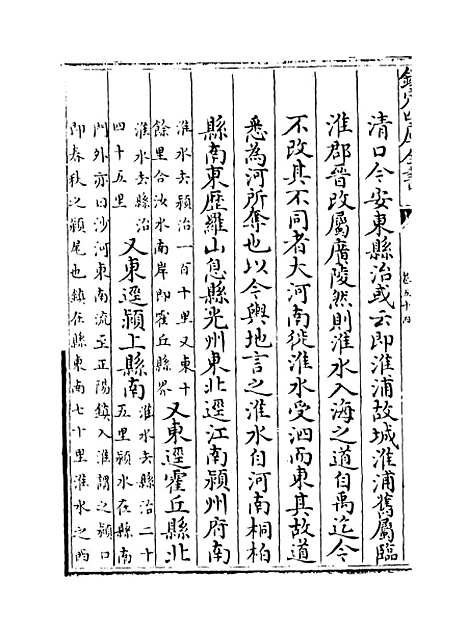 欽定四庫全書
卷五十四
清口今安東縣治或云即淮浦故城淮浦舊屬臨
淮郡晉改屬廣陵然則淮水入海之道自禹迄今
不改其不同者大河南徙淮水受泗而東其故道
悉為河所奪也以今輿地言之淮水自河南桐柏
縣南東歷羅山息縣光州東北逕江南潁州府南
淮水去潁治一百十里又東十
餘里合汝水南岸即霍丘縣界
又東逕霍丘縣北
淮水去縣治
四十五里
又東逕潁上縣南
淮水去縣治二十
五里潁水在縣南
門外亦曰沙河東南流至正陽鎮入淮謂之潁口
即春秋之潁尾也鎮在縣東南七十里淮水之西